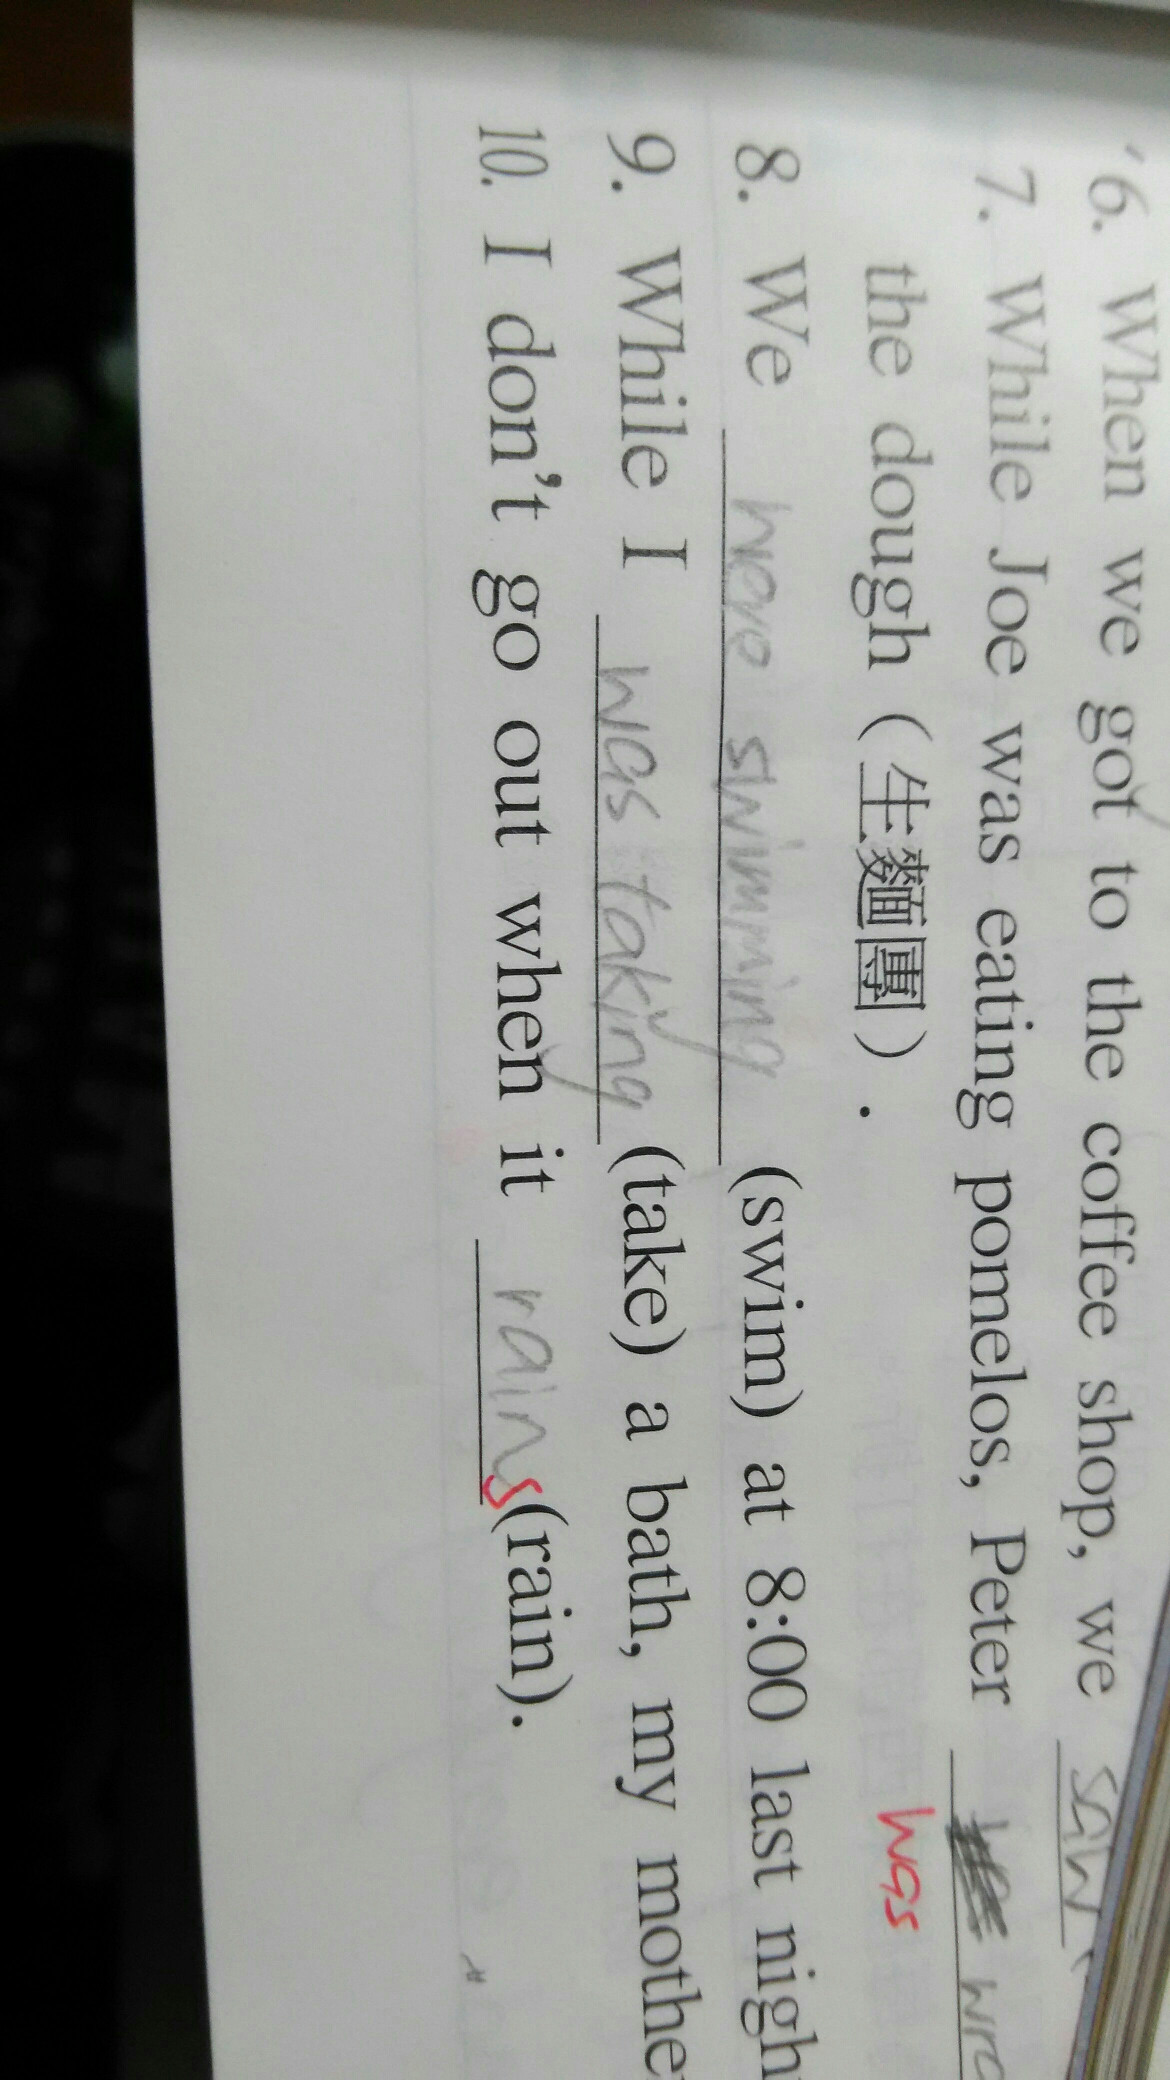 6. When we got to the coffee shop, we saw
7. While Joe was eating pomelos, Peter
was
the dough (生麵團).
8. We were swimming (swim) at 8:00 last nigh
9. While I was taking (take) a bath, my mothe
10. I don't go out when it rains (rain).